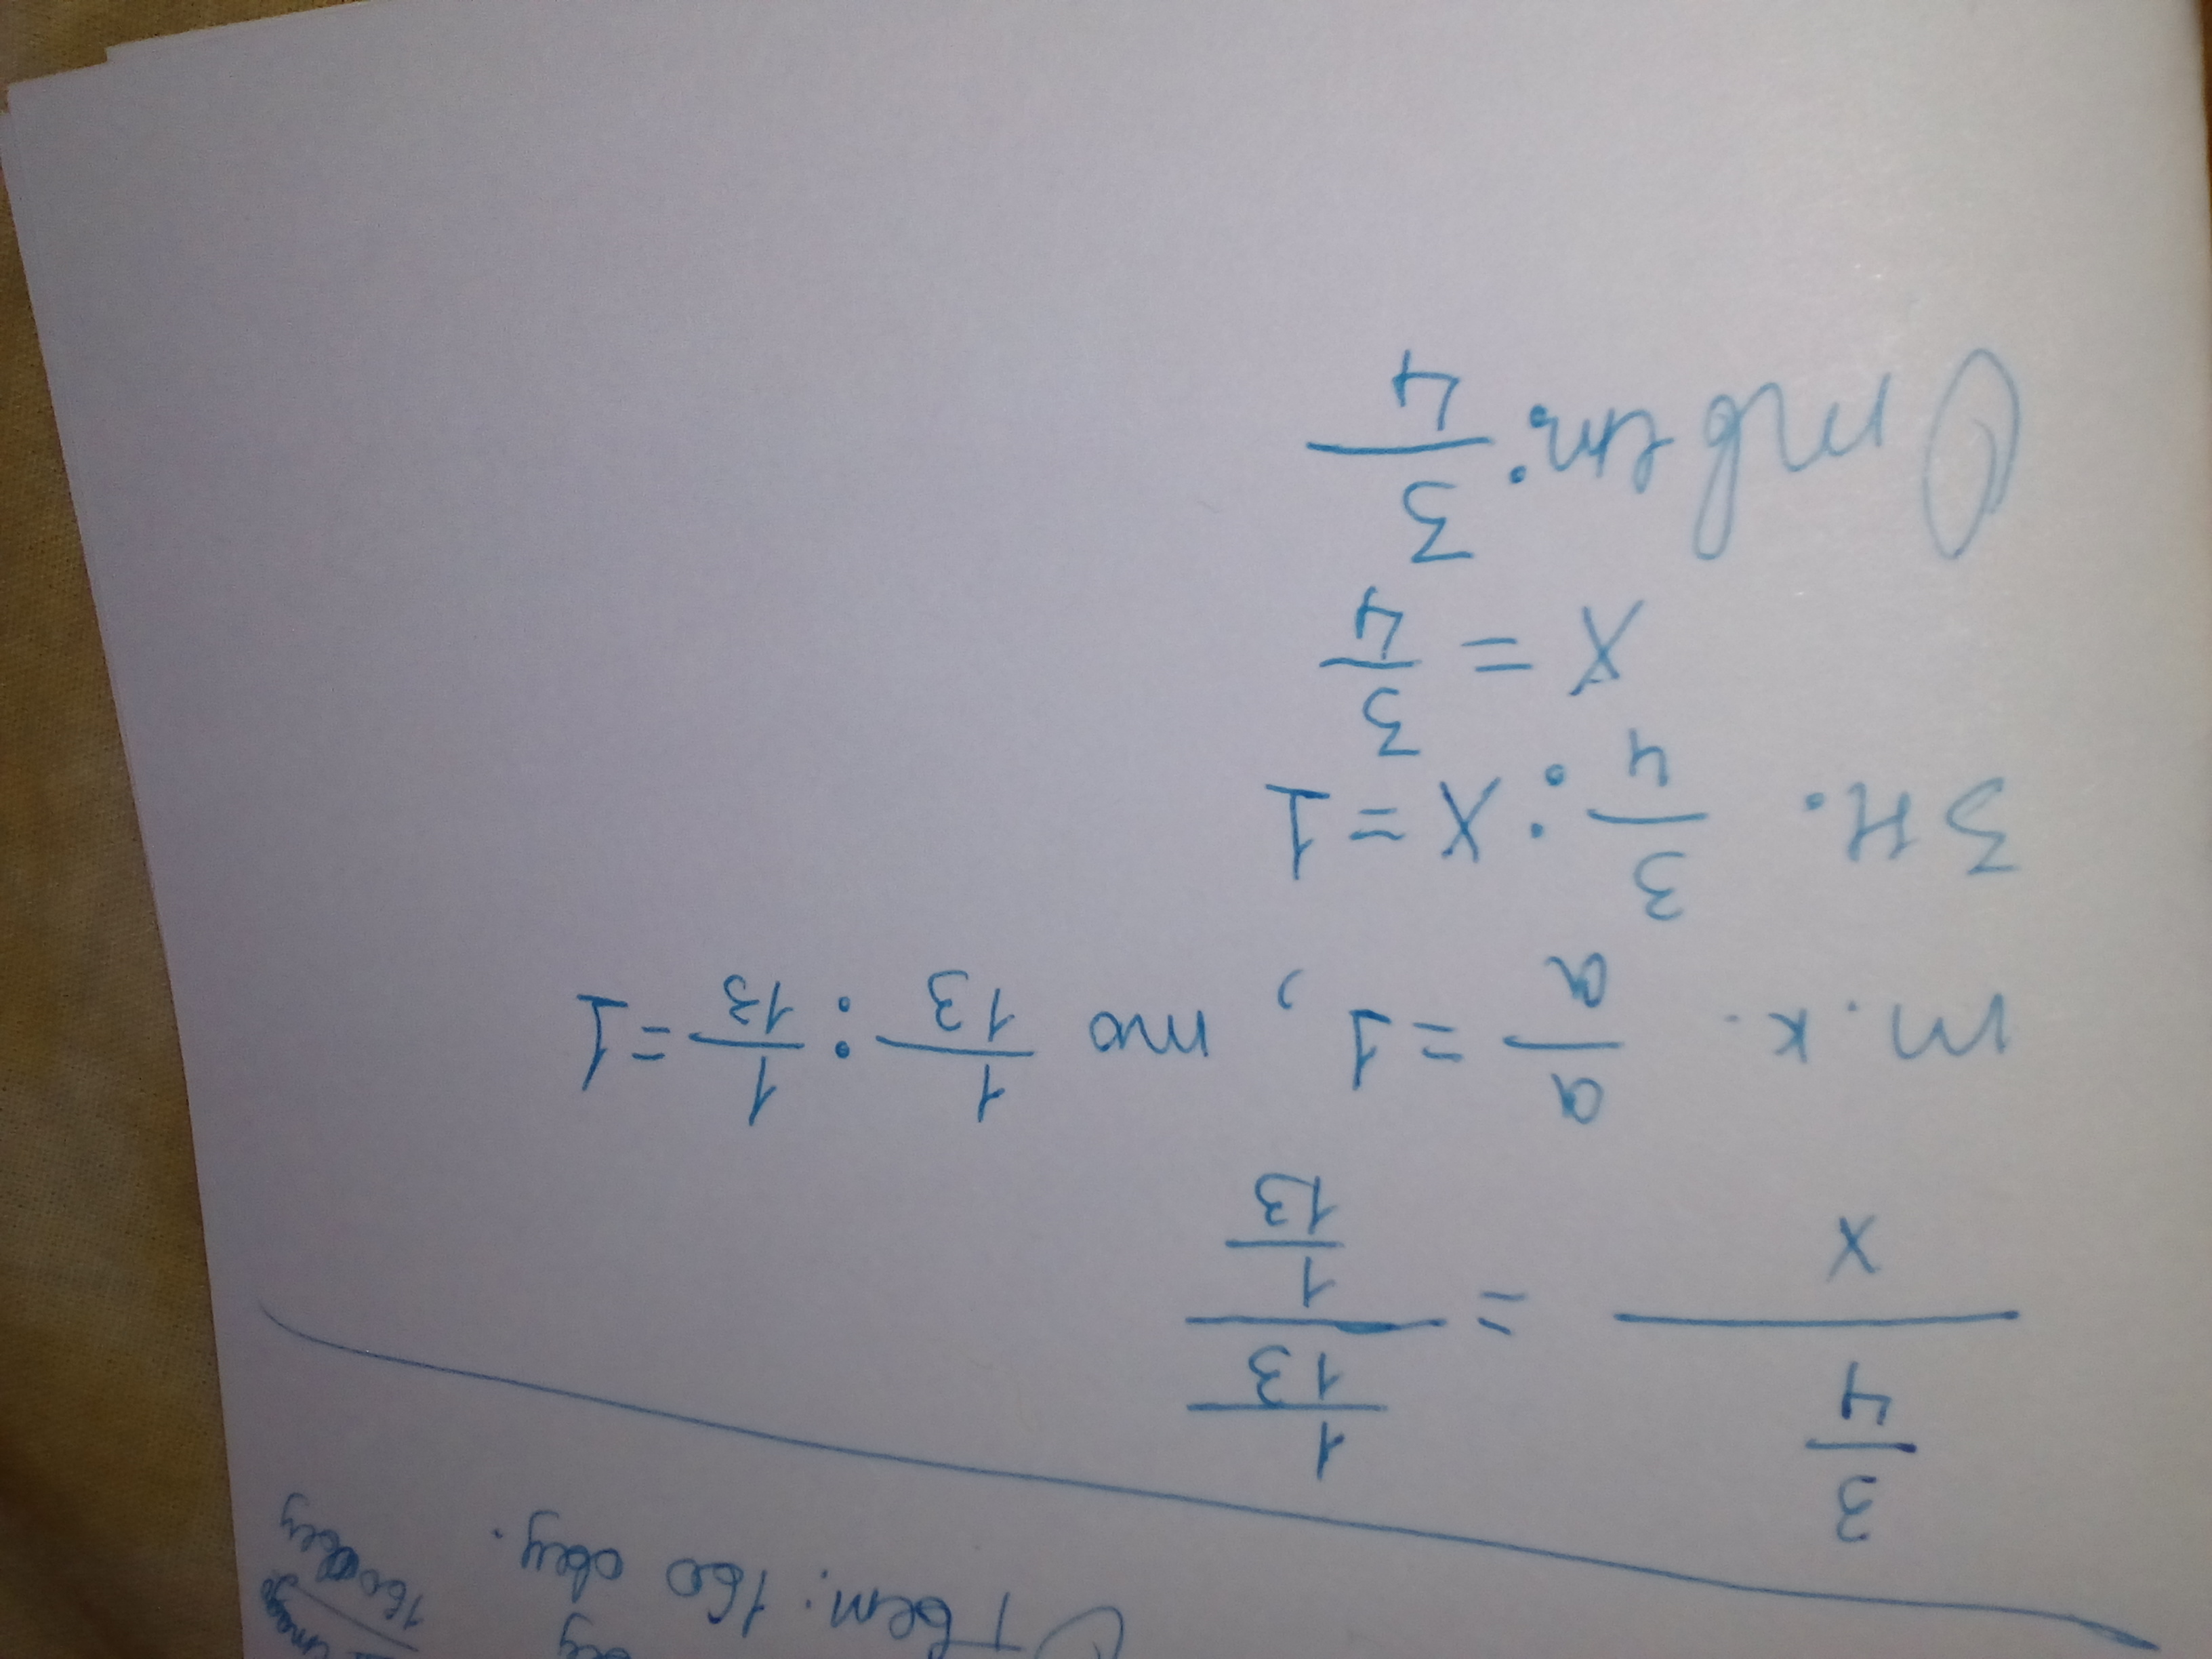 Ответ: 160 овец.
160 овец
3/4 / x = 1/13 / 1/13
т.к. a/a = 1, то 1/13 : 1/13 = 1
Зн. 3/4 : x = 1
x = 3/4
Ответ: 3/4